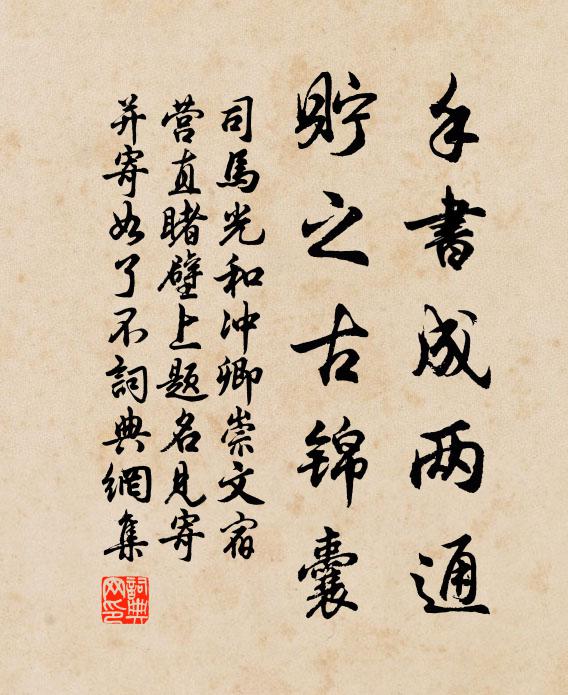 手書成两通
貯之古锦囊
司馬光和冲卿崇文宿
营直睹壁上题名見寄
并寄如了不詞典網集
詞典网印